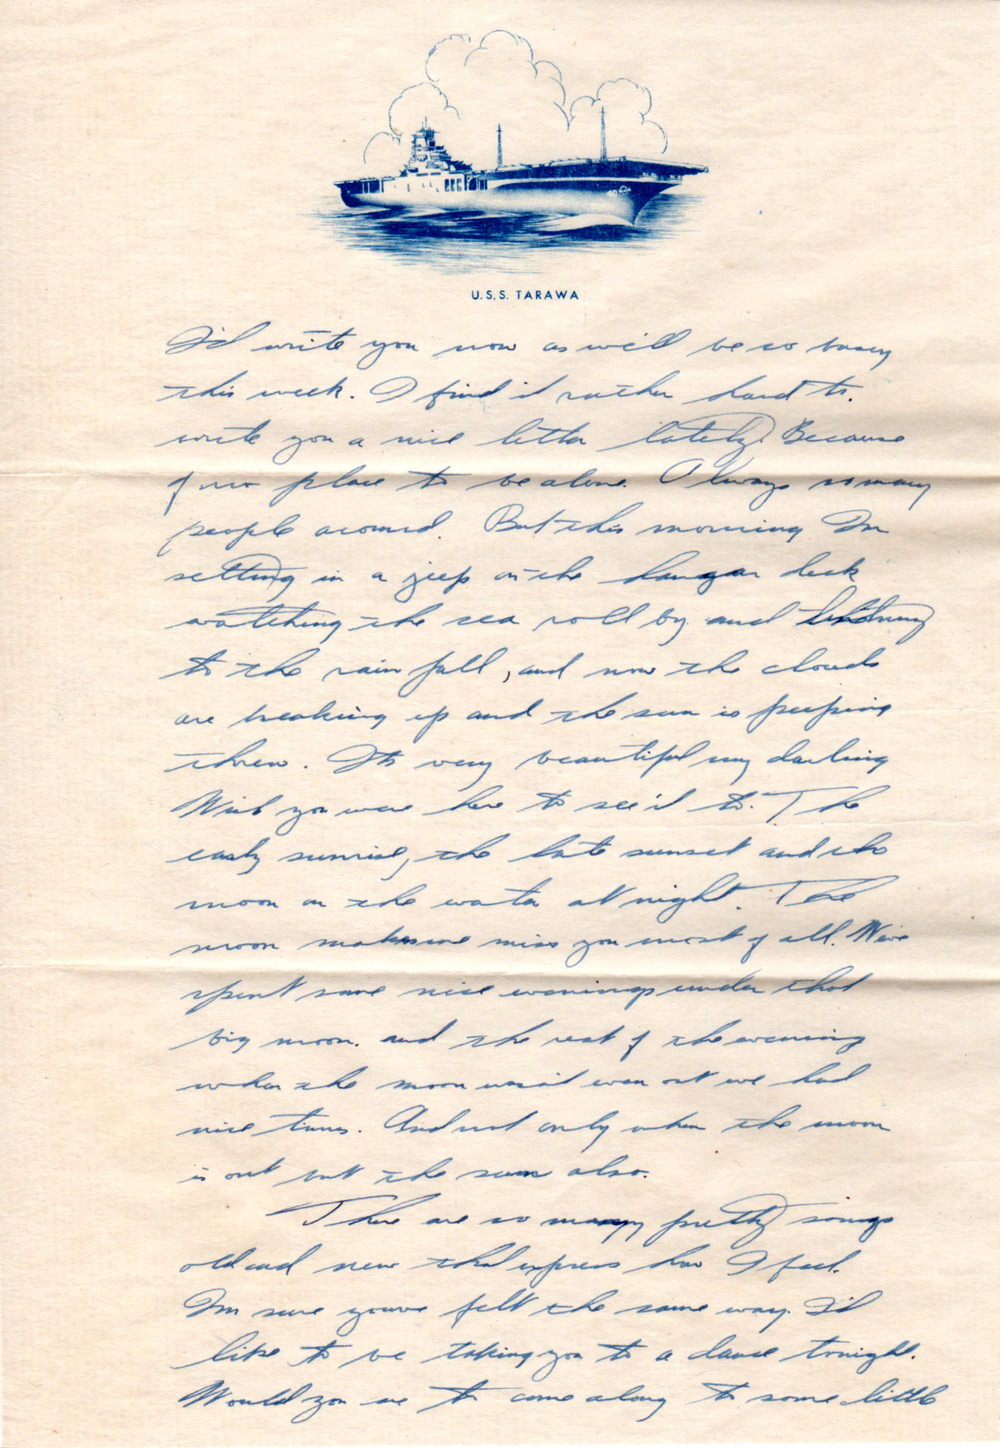 40
U.S.S. TARAWA
I'd write you now as we'll be so busy
this week. I find it rather hard to.
write you a nice letter lately. Because
of no place to be alone. Always so many
people around. But this morning Im
setting in a jeep on the hangar deck
watching the sea roll by and listning
to the rain fall, and now the clouds
are breaking up and the sun is peeping
threw. Its very beautiful my darling
Wish you were here to see it to. The
early sunrise, the late sunset and the
moon on the water at night. The
moon makes me miss you most of all. We've
spent some nice evenings under that
big moon. and the rest of the evening
when the moon wasn't even out we had
nice times. And not only when the moon
is out but the sun also.
There are so many pretty songs
old and new that express how I feel.
Im sure youve felt the same way. I'd
like to be taking you to a dance tonight.
Would you me to come along to some little